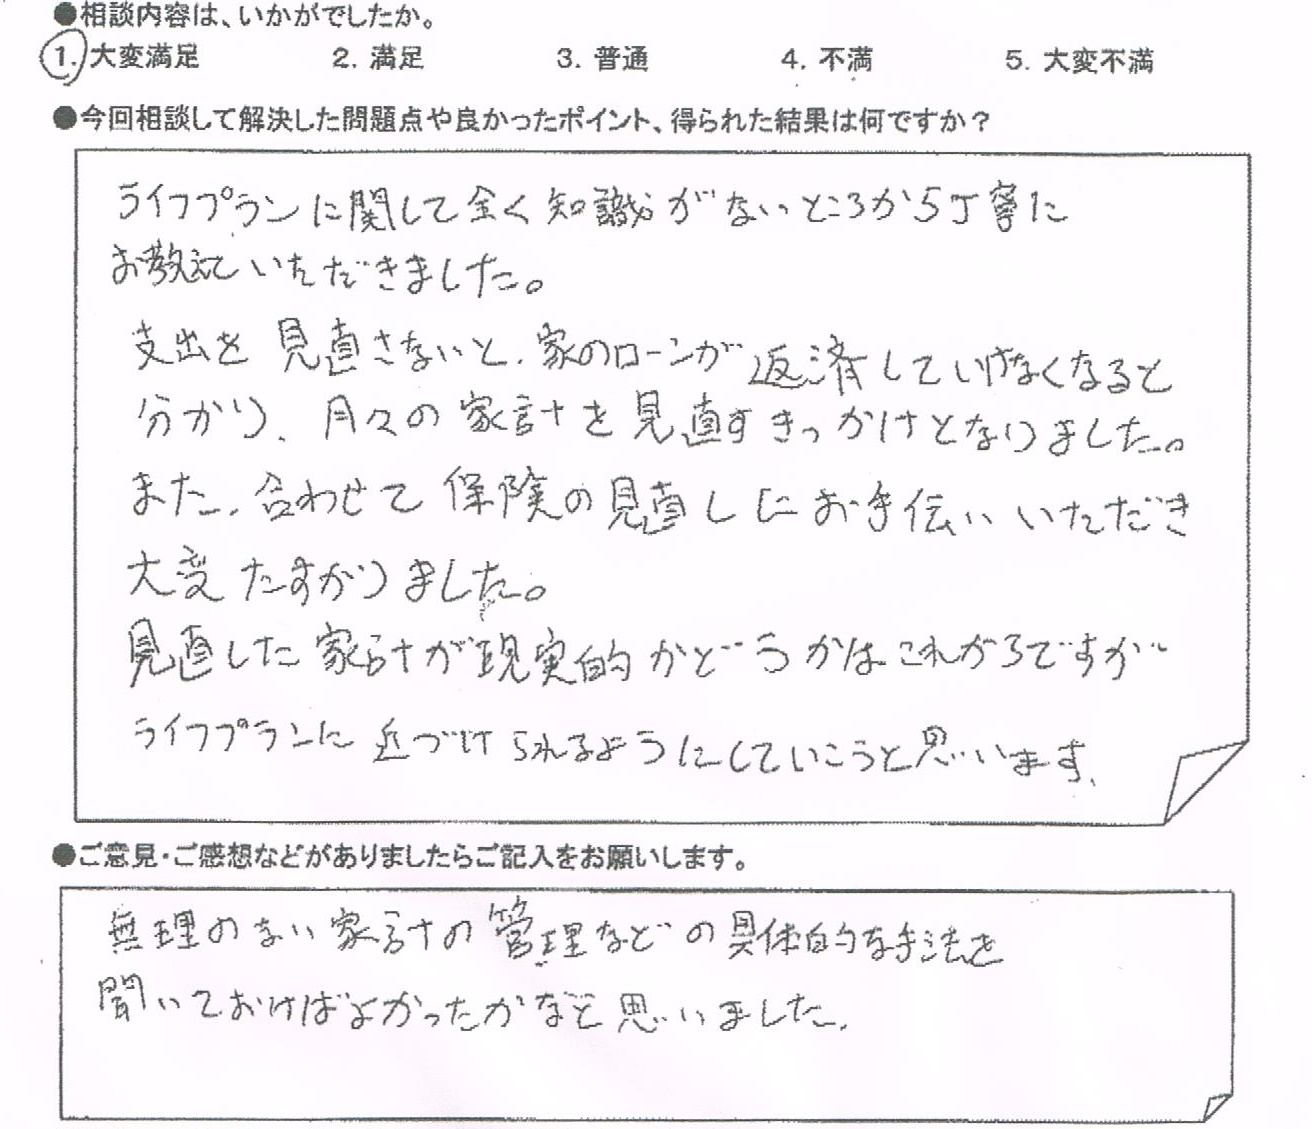 ●相談内容は、いかがでしたか。
1. 大変満足 2. 満足 3. 普通 4. 不満 5. 大変不満
●今回相談して解決した問題点や良かったポイント、得られた結果は何ですか？
ライフプランに関して全く知識がないところから丁寧に
お教えていただきました。
支出を見直さないと、家のローンが返済していけなくなると
分かり、月々の家計を見直すきっかけとなりました。
また、合わせて保険の見直しにお手伝いいただき
大変たすかりました。
見直した家計が現実的かどうかはこれからですが
ライフプランに近づけられるようにしていこうと思います、
●ご意見・ご感想などがありましたらご記入をお願いします。
無理のない家計の管理などの具体的な手法を
聞いておけばよかったかなと思いました、